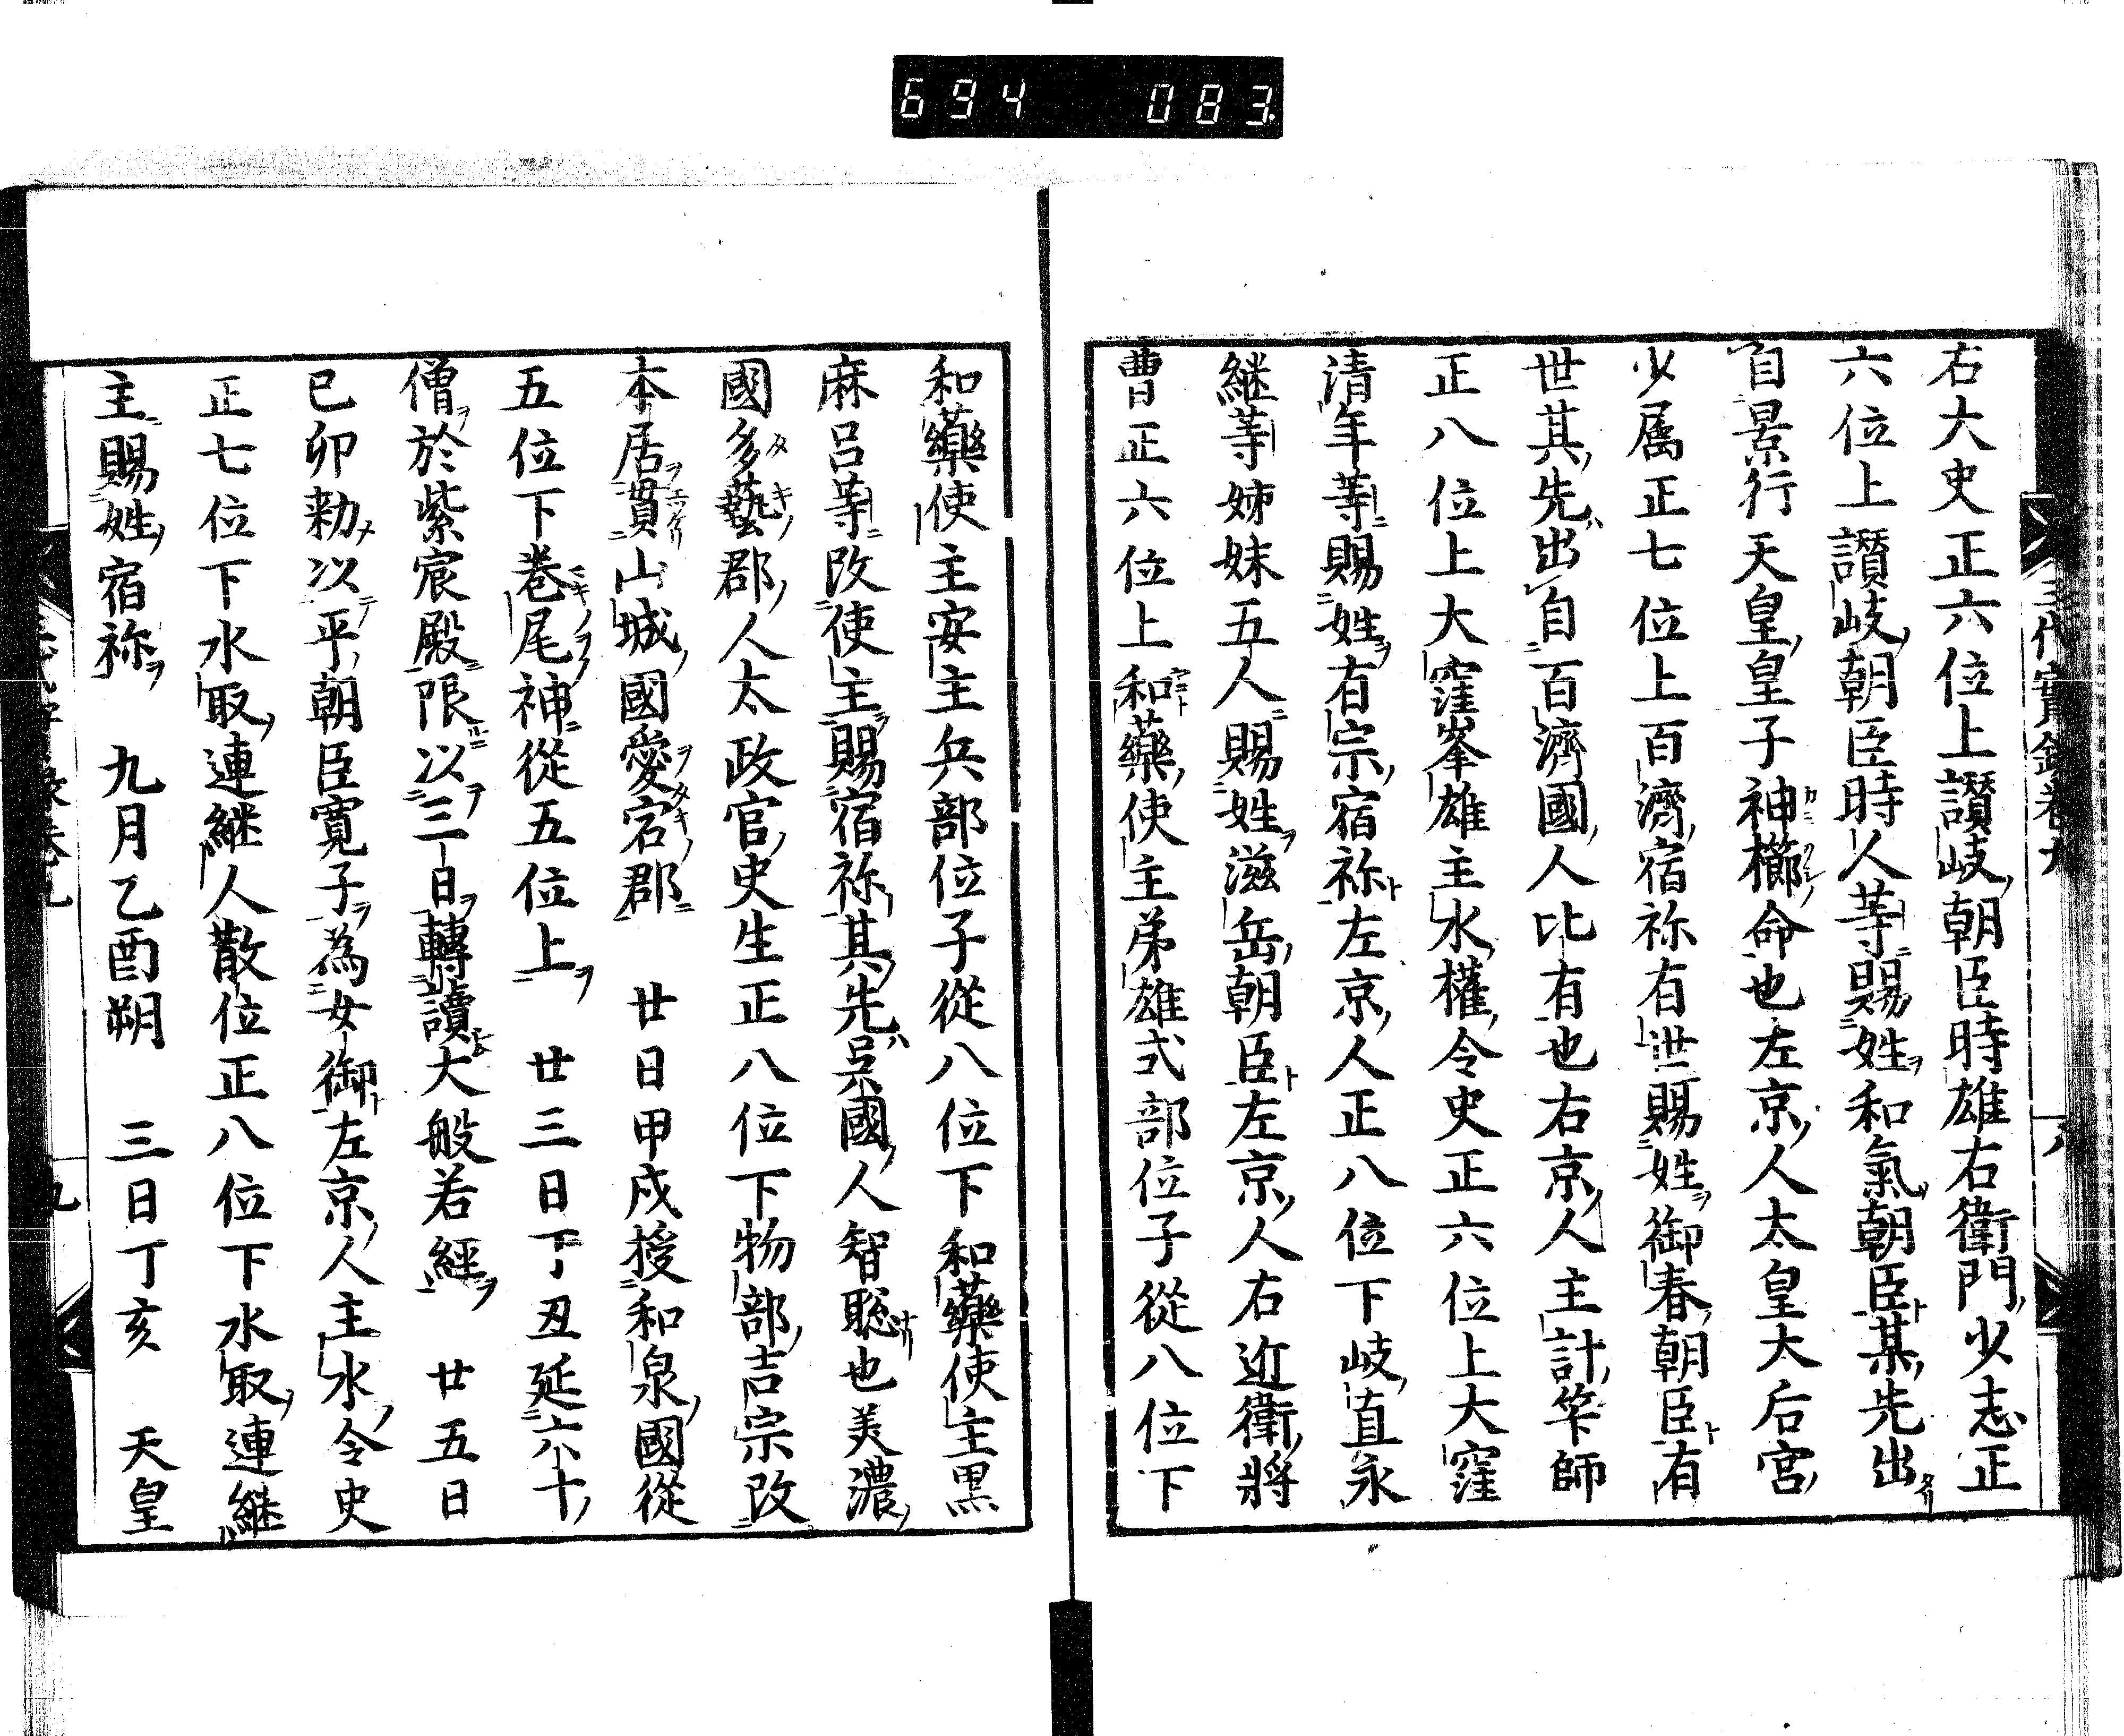 694 083
右大史正六位上讃岐朝臣時雄右衛門少志正
六位上讃岐朝臣時人等賜姓和氣朝臣其先出
自景行天皇皇子神櫛命也左京人太皇大后宮
少属正七位上百濟宿祢有世賜姓御春朝臣有
世其先出自百濟國人比有也右京人主計筭師
正八位上大窪峯雄主水權令史正六位上大窪
清年等賜姓有宗宿祢左京人正八位下岐直永
継等姉妹五人賜姓滋岳朝臣左京人右近衛將
曹正六位上和藥使主弟雄式部位子從八位下
和藥使主安主兵部位子從八位下和藥使主黒
麻呂等改使主賜宿祢其先呉國人智聡也美濃
國多藝郡人太政官史生正八位下物部吉宗改
本居貫山城國愛宕郡　廿日甲戌授和泉國從
五位下巻尾神從五位上　廿三日丁丑延六十
僧於紫宸殿限以三日轉讀大般若經　廿五日
已卯勅以平朝臣寛子為女御左京人主水令史
正七位下水取連継人散位正八位下水取連継
主賜姓宿祢　九月乙酉朔　三日丁亥　天皇